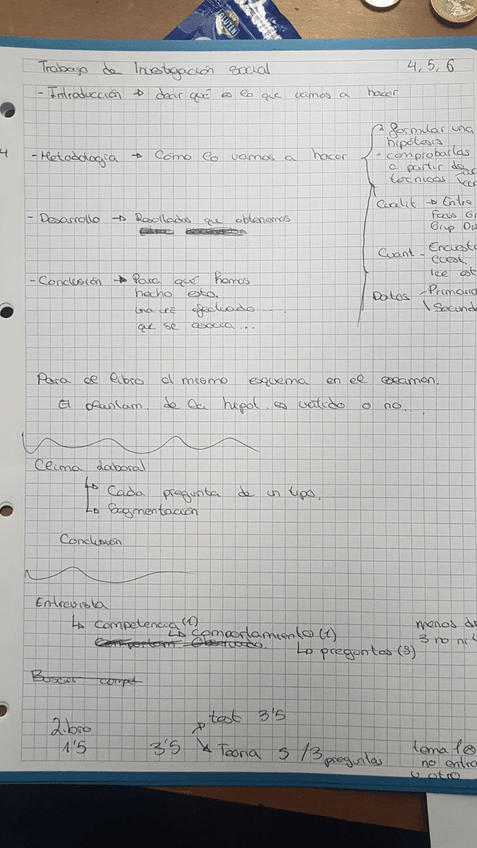 Trabajo de Investigación social 4, 5, 6
- Introducción → decir qué es lo que vamos a hacer
- Metodología → Cómo lo vamos a hacer
- formular una hipótesis
- comprobarlas a partir de técnicas
Cualit → Entre
Focus Gr
Grup Dis
Cuant - Encuesta
cuest.
Datos - Primario
\ Secunda
- Desarrollo → Resultados que obtenemos
- Conclusión → Para qué hemos
hecho esto.
una vez efectuado ...
que se asocia ...
Para el libro el mismo esquema en el examen.
El plantam. de la hipot. es válido o no...
Clima Laboral
↳ Cada pregunta de un tipo.
↳ Segmentación
Conclusión
Entrevista
↳ Competencia (1)
↳ Comportamiento (1)
↳ preguntas (3)
menos de
3 no
Buscar compet
Libro
1'5
3'5
test 3'5
Teoria 5 / 3 preguntas
tema 1
no entra
u otro